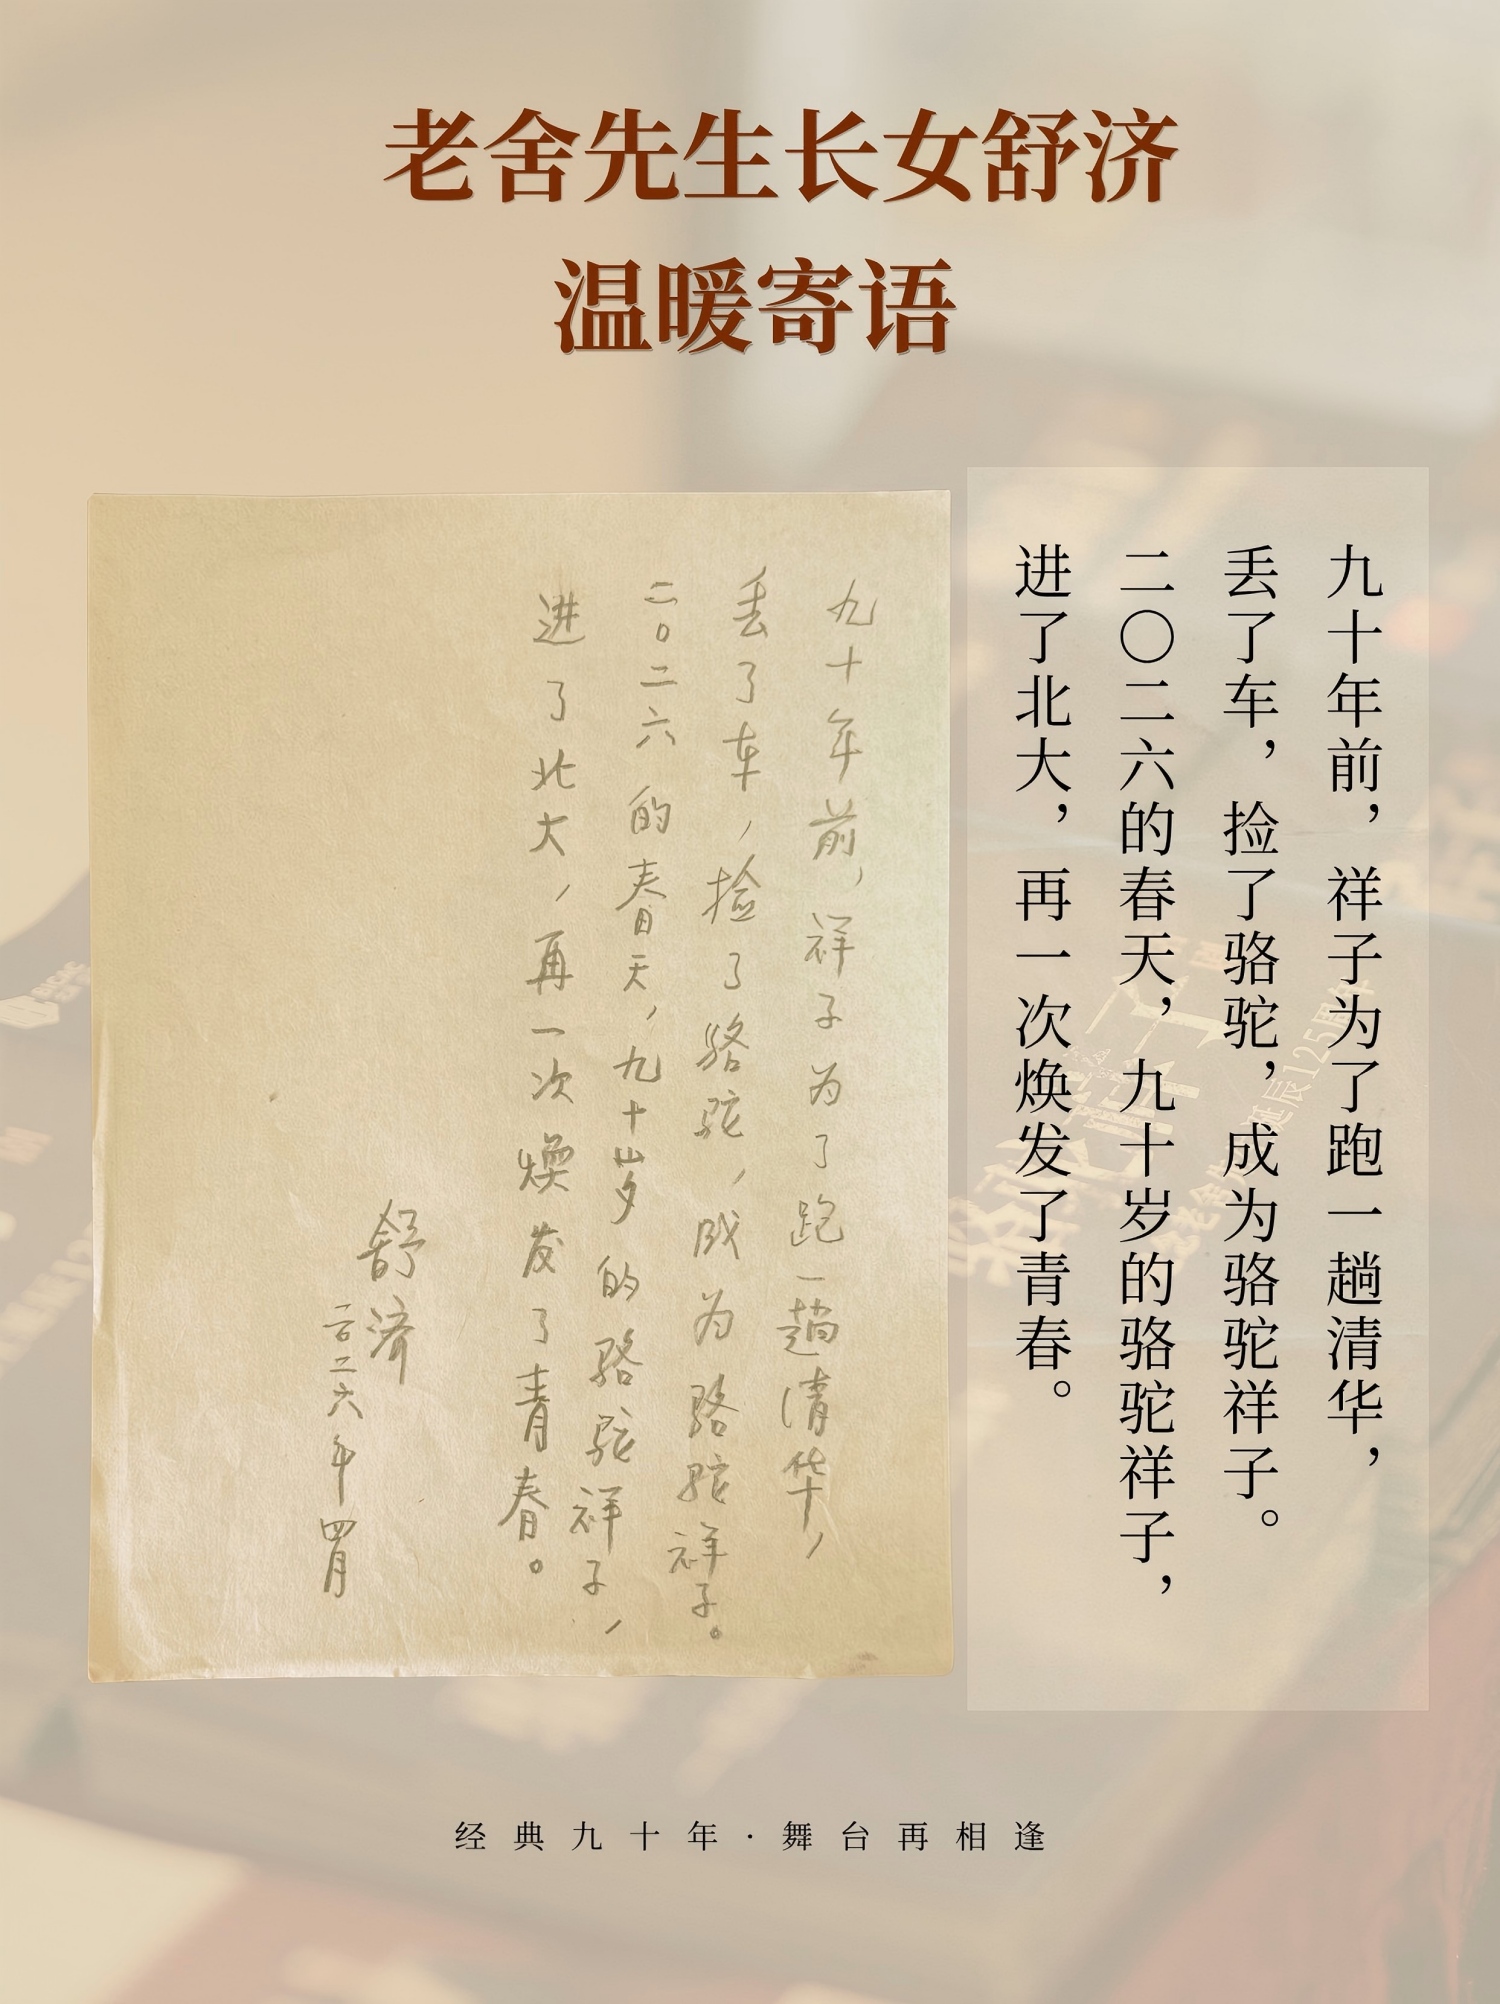 老舍先生长女舒济
温暖寄语
九十年前，祥子为了跑一趟清华，
丢了车，捡了骆驼，成为骆驼祥子。
二〇二六的春天，九十岁的骆驼祥子，
进了北大，再一次焕发了青春。
九十年前，祥子为了跑一趟清华，
丢了车，捡了骆驼，成为骆驼祥子。
二〇二六的春天，九十岁的骆驼祥子，
进了北大，再一次焕发了青春。
舒济
二〇二六年四月
经典九十年·舞台再相逢